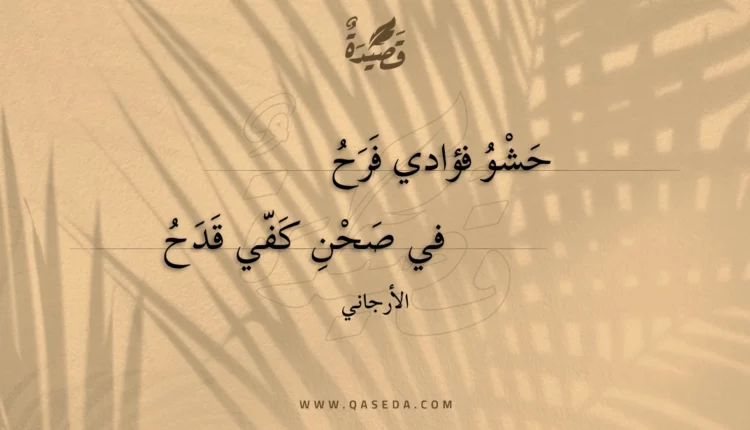 قَصِيْدَةٌ
حَشْوُ فؤادي فَرَحُ
في صَحْنِ كَفّي قَدَحُ
الأرجاني
WWW.QASEDA.COM